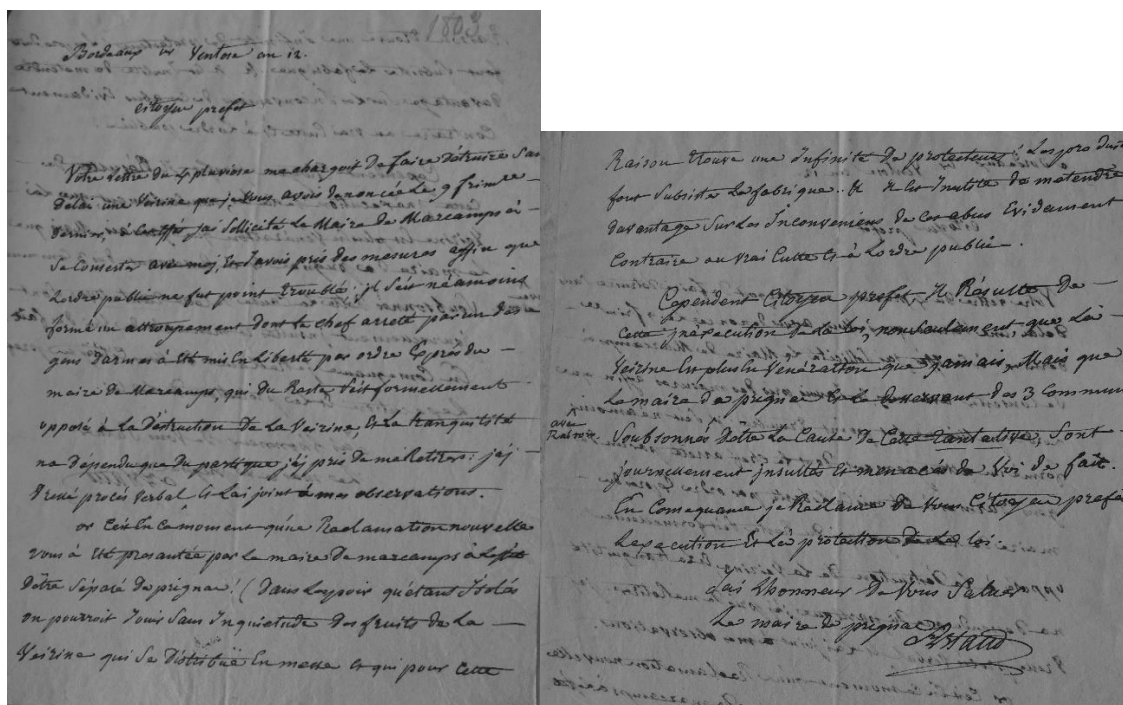 1803
Bordeaux Ventose an 12.
citoyen prefet
Votre lettre du 4 pluviose me chargoit De faire Détruire San
Délai une Veirine que je vous avois dénoncée Le 9 frimre
dernier, à Cet effet j'ai Sollicité Le Maire de Marcamps à
Se Conserter avec moj, Et j'avois pris des mesures affin que
Lordre public ne fut point troublé; jl Seit néamoins
formé un attroupement dont le chef arreté par un des
gens Darmes à Eté mis En Liberté par ordre Exprès du
maire de Marcamps, qui Du Reste S'Est formellement
opposé à La Destruction de La Veirine, Et La tranquilité
na Dépendu que Du parti que j'ej pris De me Retirer: j'ej
Dressé procès verbal Et L'ai joint à mes observations.
or C'est En Ce moment qu'une Raclamation nouvelle
vous à Eté presantée par Le maire De marcamps à Leffet
Dêtre Séparé De prignac! (Dans Lespoir qu'étans Isolés
on pourroit Jouir Sans Inquietude Des fruits de La
Veirine qui Se Distribuë En messe Et qui pour Cette
Raison trouve une Infinité De protecteurs; Les pro duits
font Subsister La fabrique.. Et Il Est Inutile De m'etendre
Davantage Sur Les Inconveniens De Cet abus Evidament
Contraire au vrai Culte Et à Lordre public.
Cependent Citoyen prefet Il Résulte De
Cette jnéxécution De La Loi, non Seulement que La
Veirine Est plus En Vénération que jamais, Mais que
Le maire De prignac Et Le Desservant Des 3 Commun
avec
Raison
Soubsonnés Dêtre La Cause De Cette tantative, Sont
journellement jnsultés Et menacés De Voi De fait.
En Consequance je Réclame De Vous Citoyen prefet
Lexecution Et La protection De La Loi.
J'ais Lhonneur De Vous Saluer
Le maire De prignac